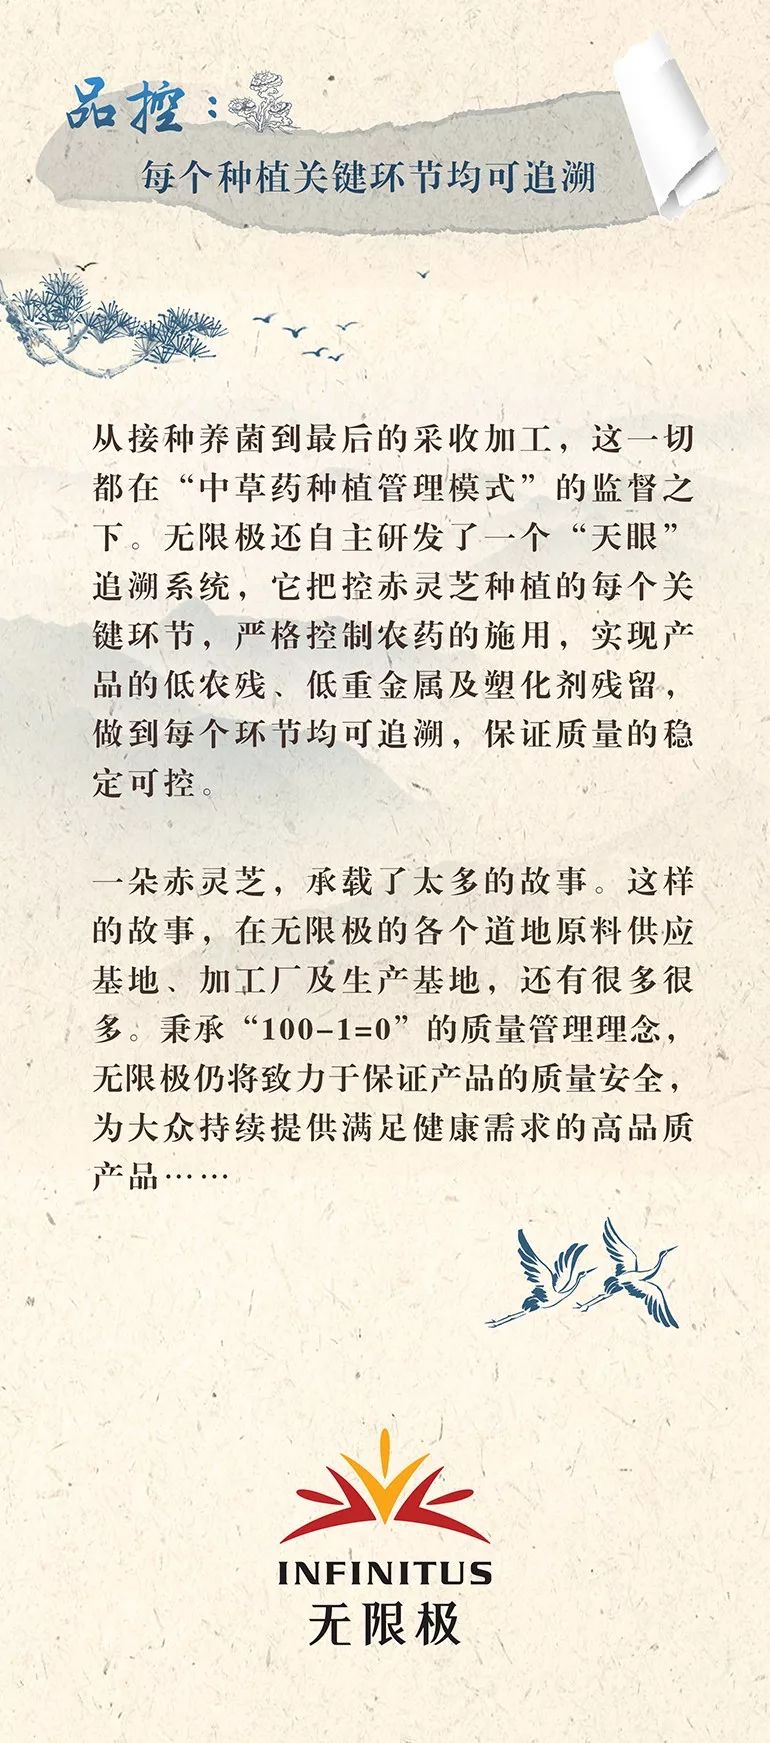 品控：
每个种植关键环节均可追溯
从接种养菌到最后的采收加工，这一切
都在“中草药种植管理模式”的监督之
下。无限极还自主研发了一个“天眼”
追溯系统，它把控赤灵芝种植的每个关
键环节，严格控制农药的施用，实现产
品的低农残、低重金属及塑化剂残留，
做到每个环节均可追溯，保证质量的稳
定可控。
一朵赤灵芝，承载了太多的故事。这样
的故事，在无限极的各个道地原料供应
基地、加工厂及生产基地，还有很多很
多。秉承“100-1=0”的质量管理理念，
无限极仍将致力于保证产品的质量安全，
为大众持续提供满足健康需求的高品质
产品……
INFINITUS
无限极